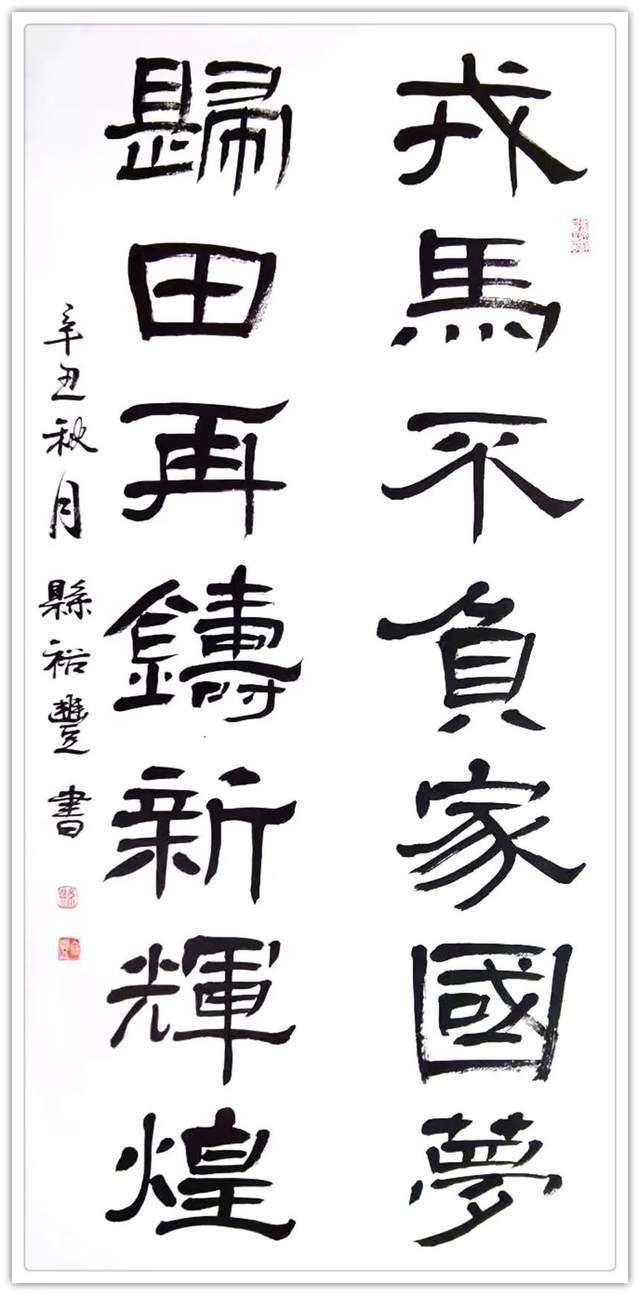 戎馬不負家國夢
歸田再鑄新輝煌
辛丑秋月 縣裕豐書